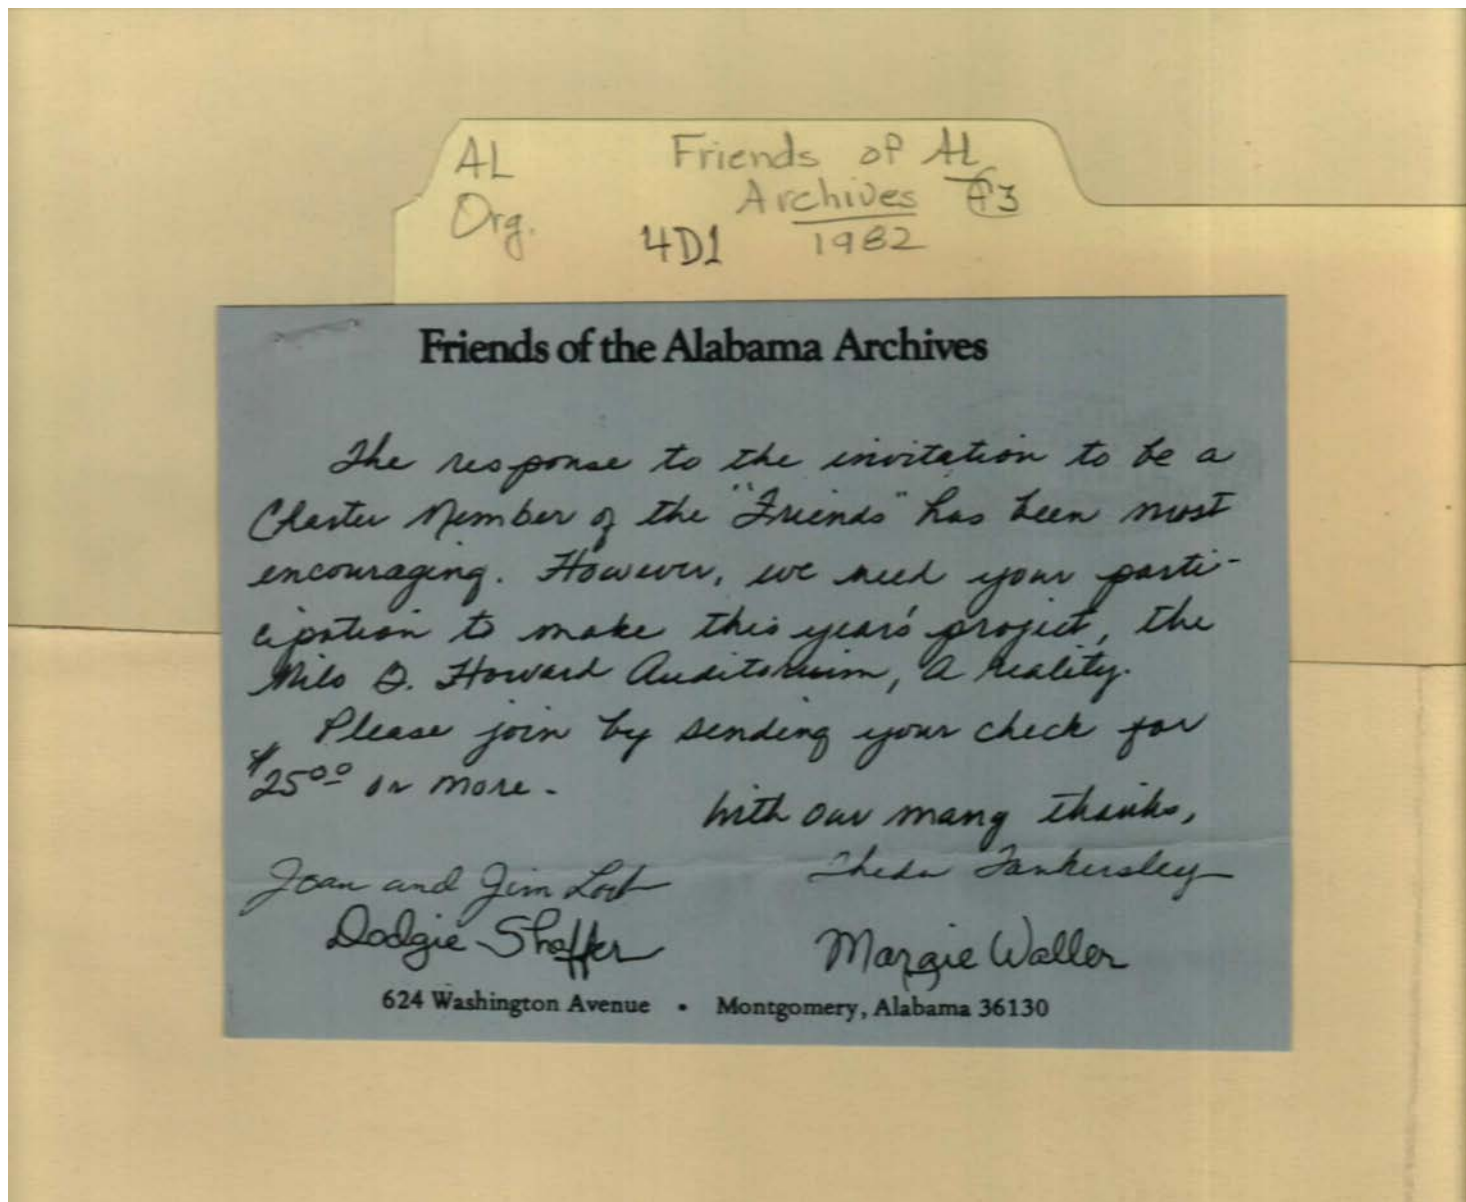 AL Friends of AL
Org. Archives
4D1 1982
Friends of the Alabama Archives
The response to the invitation to be a
Charter Member of the "Friends" has been most
encouraging. However, we need your parti-
cipation to make this year's project, the
Milo B. Howard Auditorium, a reality.
Please join by sending your check for
$25.00 or more.
With our many thanks,
Joan and Jim Loeb Theda Tankersley
Dodgie Shaffer Margie Waller
624 Washington Avenue • Montgomery, Alabama 36130